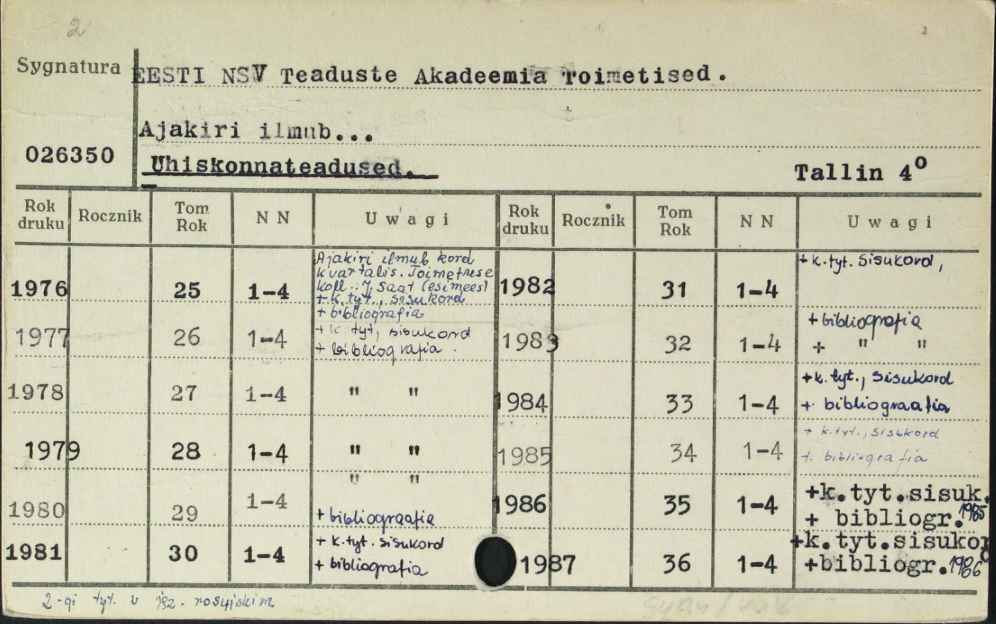 2
Sygnatura
EESTI NSV Teaduste Akadeemia Toimetised.
Ajakiri ilmub...
026350
Uhiskonnateadused.
Tallin 4º
Rok druku Rocznik Tom Rok N N Uwagi Rok druku Rocznik Tom Rok N N Uwagi
Ajakiri ilmub kord
kvartalis. Toimetuse
koll.: J. Saat (esimees)
1976 25 1-4 + k. tyt., sisukord
+ bibliografia
1982 31 1-4 + k. tyt. sisukord,
+ bibliografia
1977 26 1-4 + k tyt, sisukord
+ bibliografia.
1983 32 1-4 + " "
1978 27 1-4 " "
1984 33 1-4 + k. tyt., sisukord
+ bibliograafia
1979 28 1-4 " "
1985 34 1-4 + k. tyt., sisukord
+ bibliografia
1980 29 1-4 " "
+ bibliograafia
1986 35 1-4 +k.tyt.sisuk.
+ bibliogr. 1985
1981 30 1-4 + k. tyt. sisukord
+ bibliografia
1987 36 1-4 +k.tyt.sisukord
+bibliogr. 1986
2-gi tyt. w jęz. rosyjskim